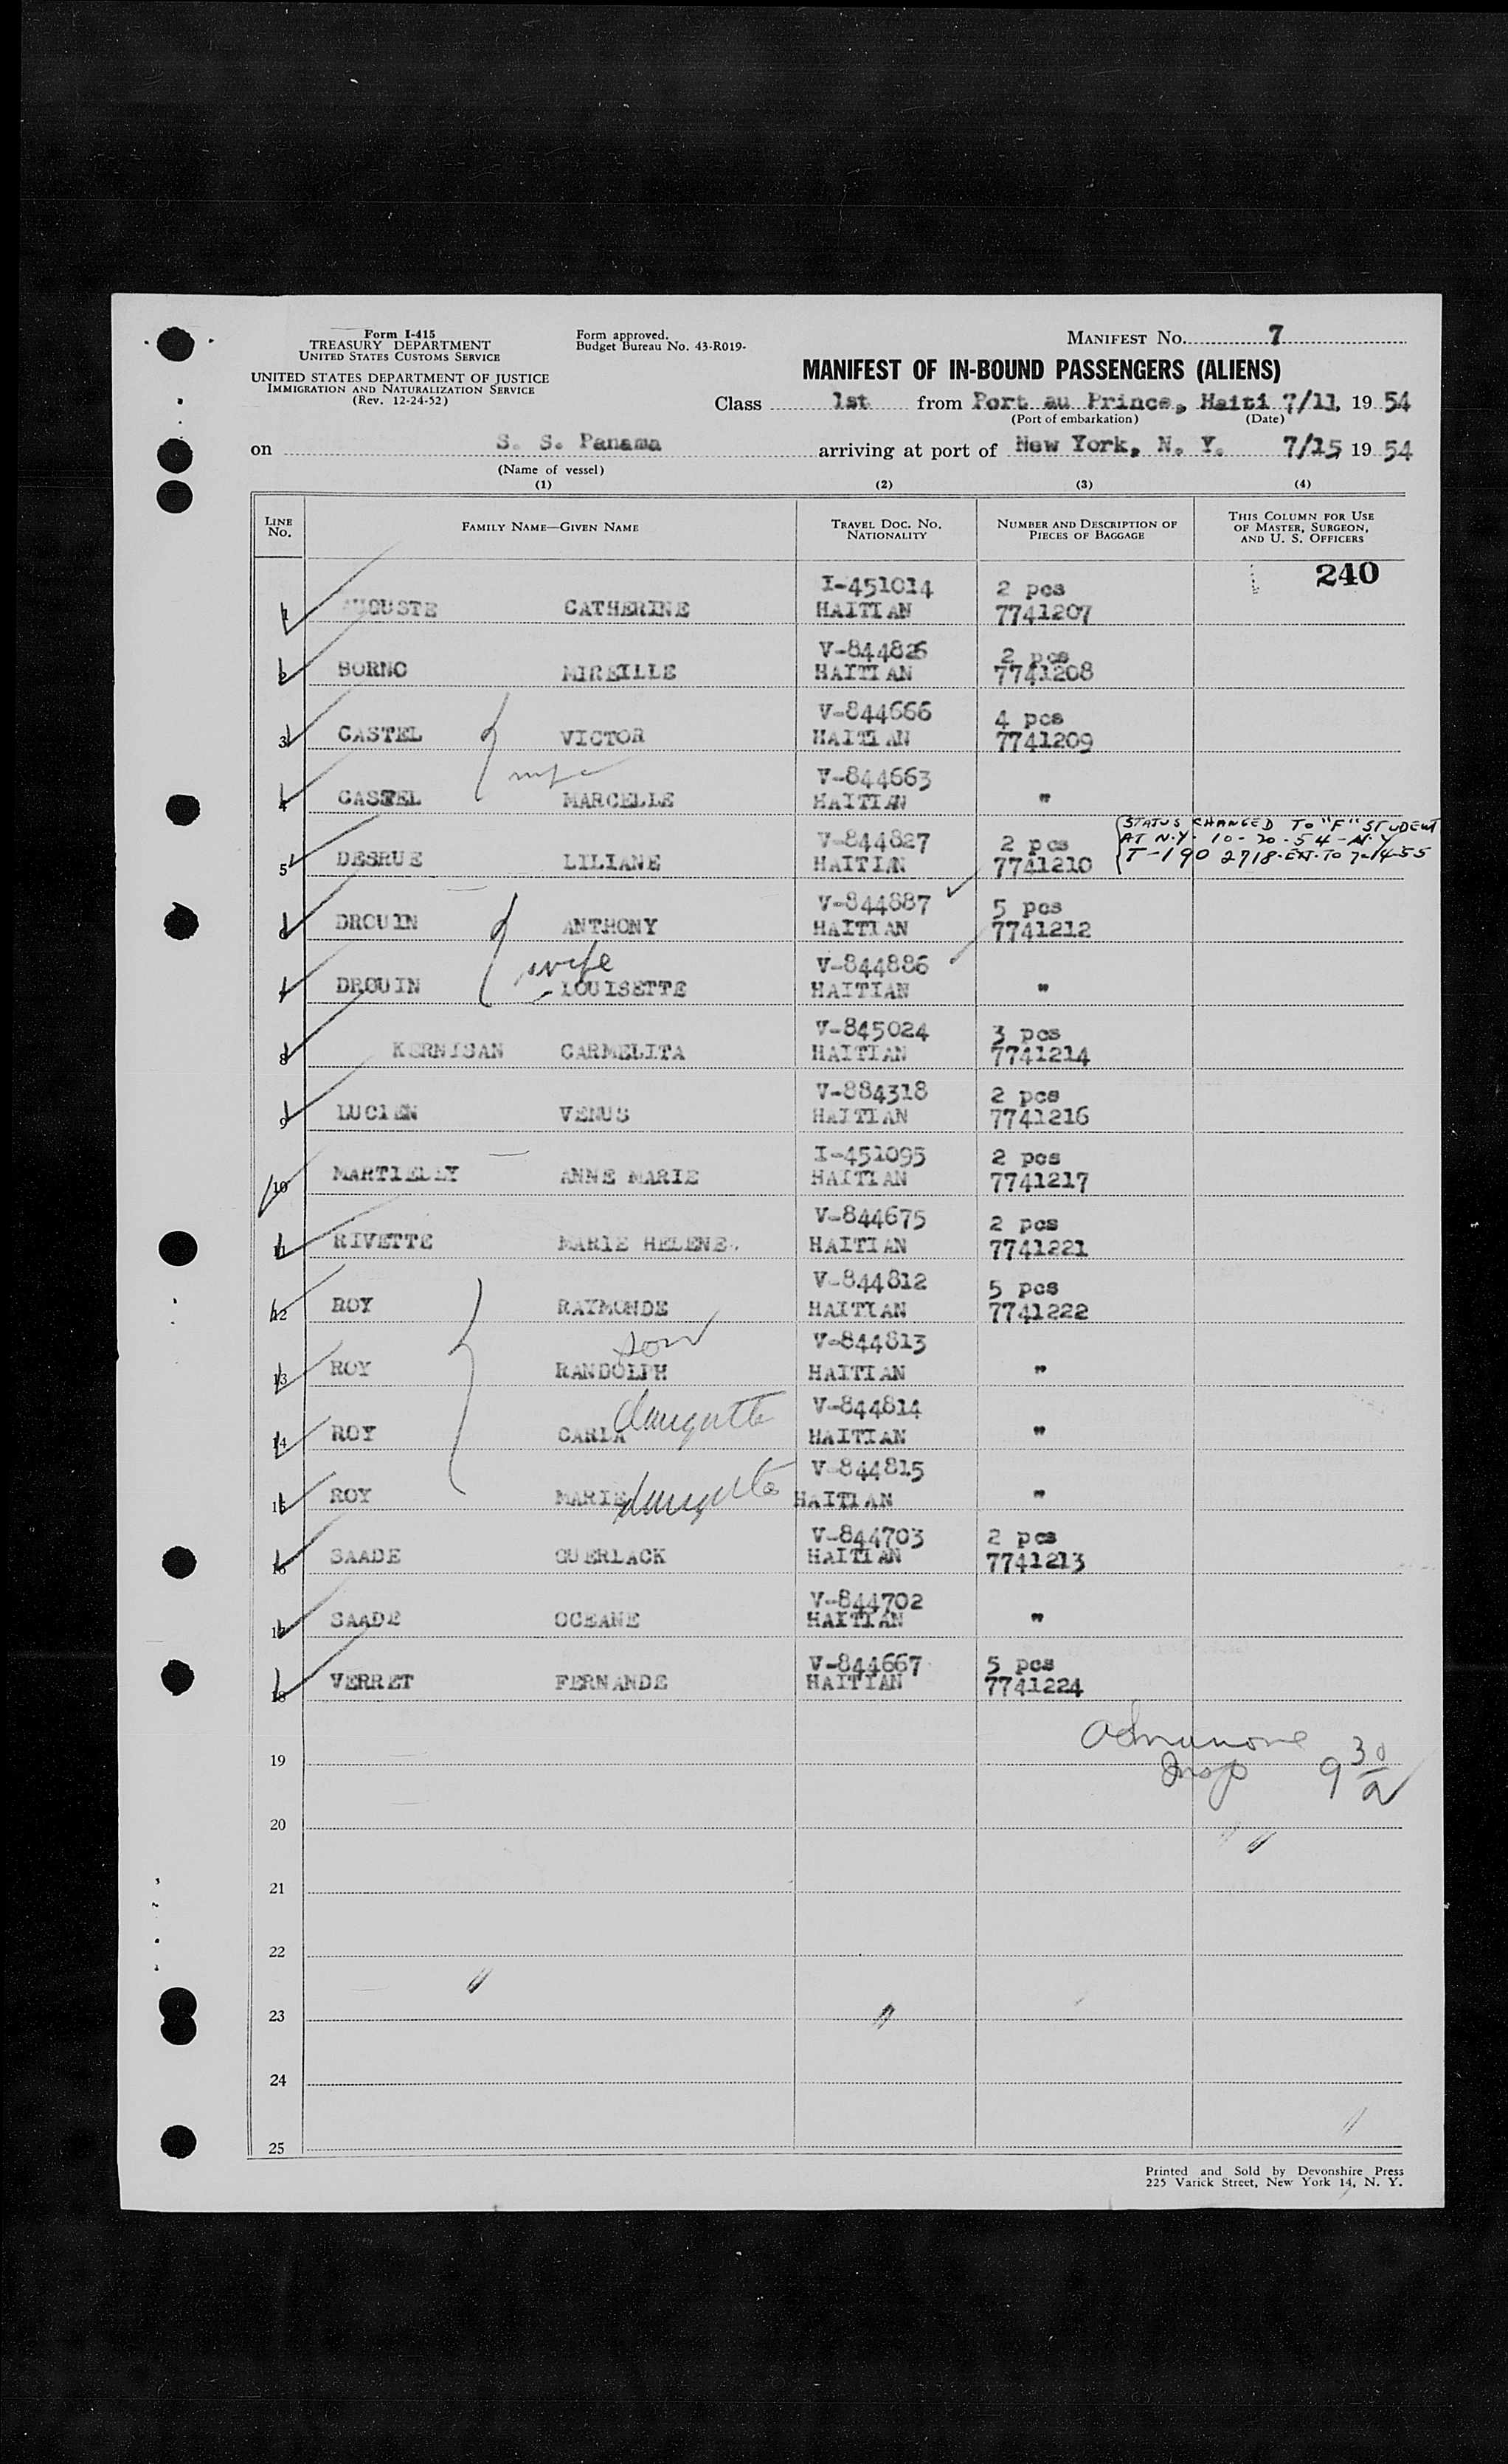 Form I-415
TREASURY DEPARTMENT
UNITED STATES CUSTOMS SERVICE
UNITED STATES DEPARTMENT OF JUSTICE
IMMIGRATION AND NATURALIZATION SERVICE
(Rev. 12-24-52)
Form approved.
Budget Bureau No. 43-R019-
MANIFEST No. 7
MANIFEST OF IN-BOUND PASSENGERS (ALIENS)
Class 1st from Port au Prince, Haiti 7/11, 19 54
(Port of embarkation) (Date)
on S. S. Panama arriving at port of New York, N. Y. 7/15 19 54
(Name of vessel)
(1) (2) (3) (4)
LINE No. FAMILY NAME—GIVEN NAME TRAVEL DOC. No. NATIONALITY NUMBER AND DESCRIPTION OF PIECES OF BAGGAGE THIS COLUMN FOR USE OF MASTER, SURGEON, AND U. S. OFFICERS
240
I-451014 2 pcs
1 AUGUSTE CATHERINE HAITIAN 7741207
V-844826 2 pcs
2 BORNO MIREILLE HAITIAN 7741208
V-844666 4 pcs
3 CASTEL VICTOR HAITIAN 7741209
V-844663
4 CASTEL MARCELLE HAITIAN "
STATUS CHANGED TO "F" STUDENT
AT N.Y. 10-20-54-N.Y
T-190 2718-EXT. TO 7-14-55
V-844827 2 pcs
5 DESRUE LILIANE HAITIAN 7741210
V-844887 5 pcs
6 DROUIN ANTHONY HAITIAN 7741212
wife V-844886
7 DROUIN LOUISETTE HAITIAN "
V-845024 3 pcs
8 KERNISAN CARMELITA HAITIAN 7741214
V-884318 2 pcs
9 LUCIEN VENUS HAITIAN 7741216
I-451095 2 pcs
10 MARTIELLY ANNE MARIE HAITIAN 7741217
V-844675 2 pcs
11 RIVETTE MARIE HELENE HAITIAN 7741221
V-844812 5 pcs
12 ROY RAYMONDE HAITIAN 7741222
son V-844813
13 ROY RANDOLPH HAITIAN "
V-844814
14 ROY CARLA HAITIAN "
V-844815
15 ROY MARIE HAITIAN "
V-844703 2 pcs
16 SAADE GUERLACK HAITIAN 7741213
V-844702
17 SAADE OCEANE HAITIAN "
V-844667 5 pcs
18 VERRET FERNANDE HAITIAN 7741224
19
Insp 9 30/a
20
21
22
23
24
25
Printed and Sold by Devonshire Press
225 Varick Street, New York 14, N. Y.